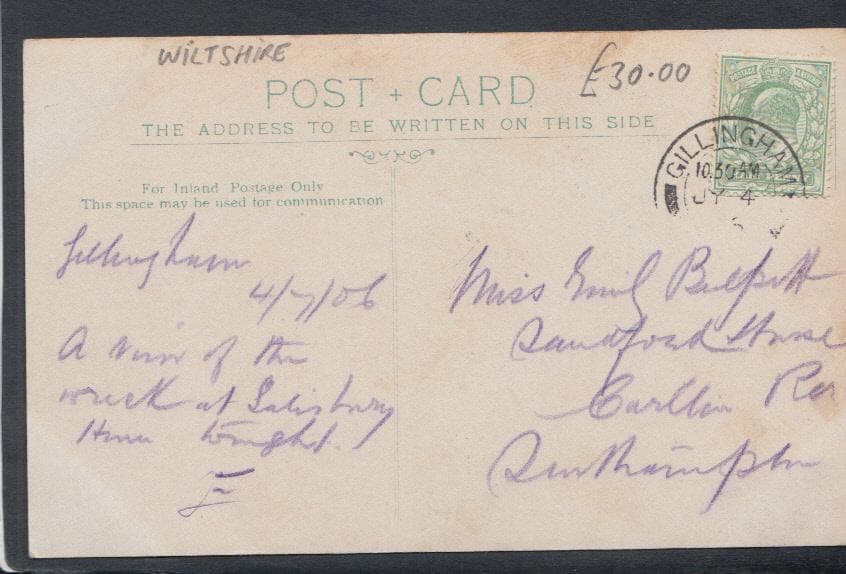 WILTSHIRE
£30.00
POST + CARD
THE ADDRESS TO BE WRITTEN ON THIS SIDE
POSTAGE & REVENUE
GILLINGHAM
10.30AM
JY 4
For Inland Postage Only
This space may be used for communication
Gillingham
4/7/06
A view of the
wreck at Salisbury
Home tonight.
E
Miss Emil Bulpitt
Sandford House
Carlton
Southampton